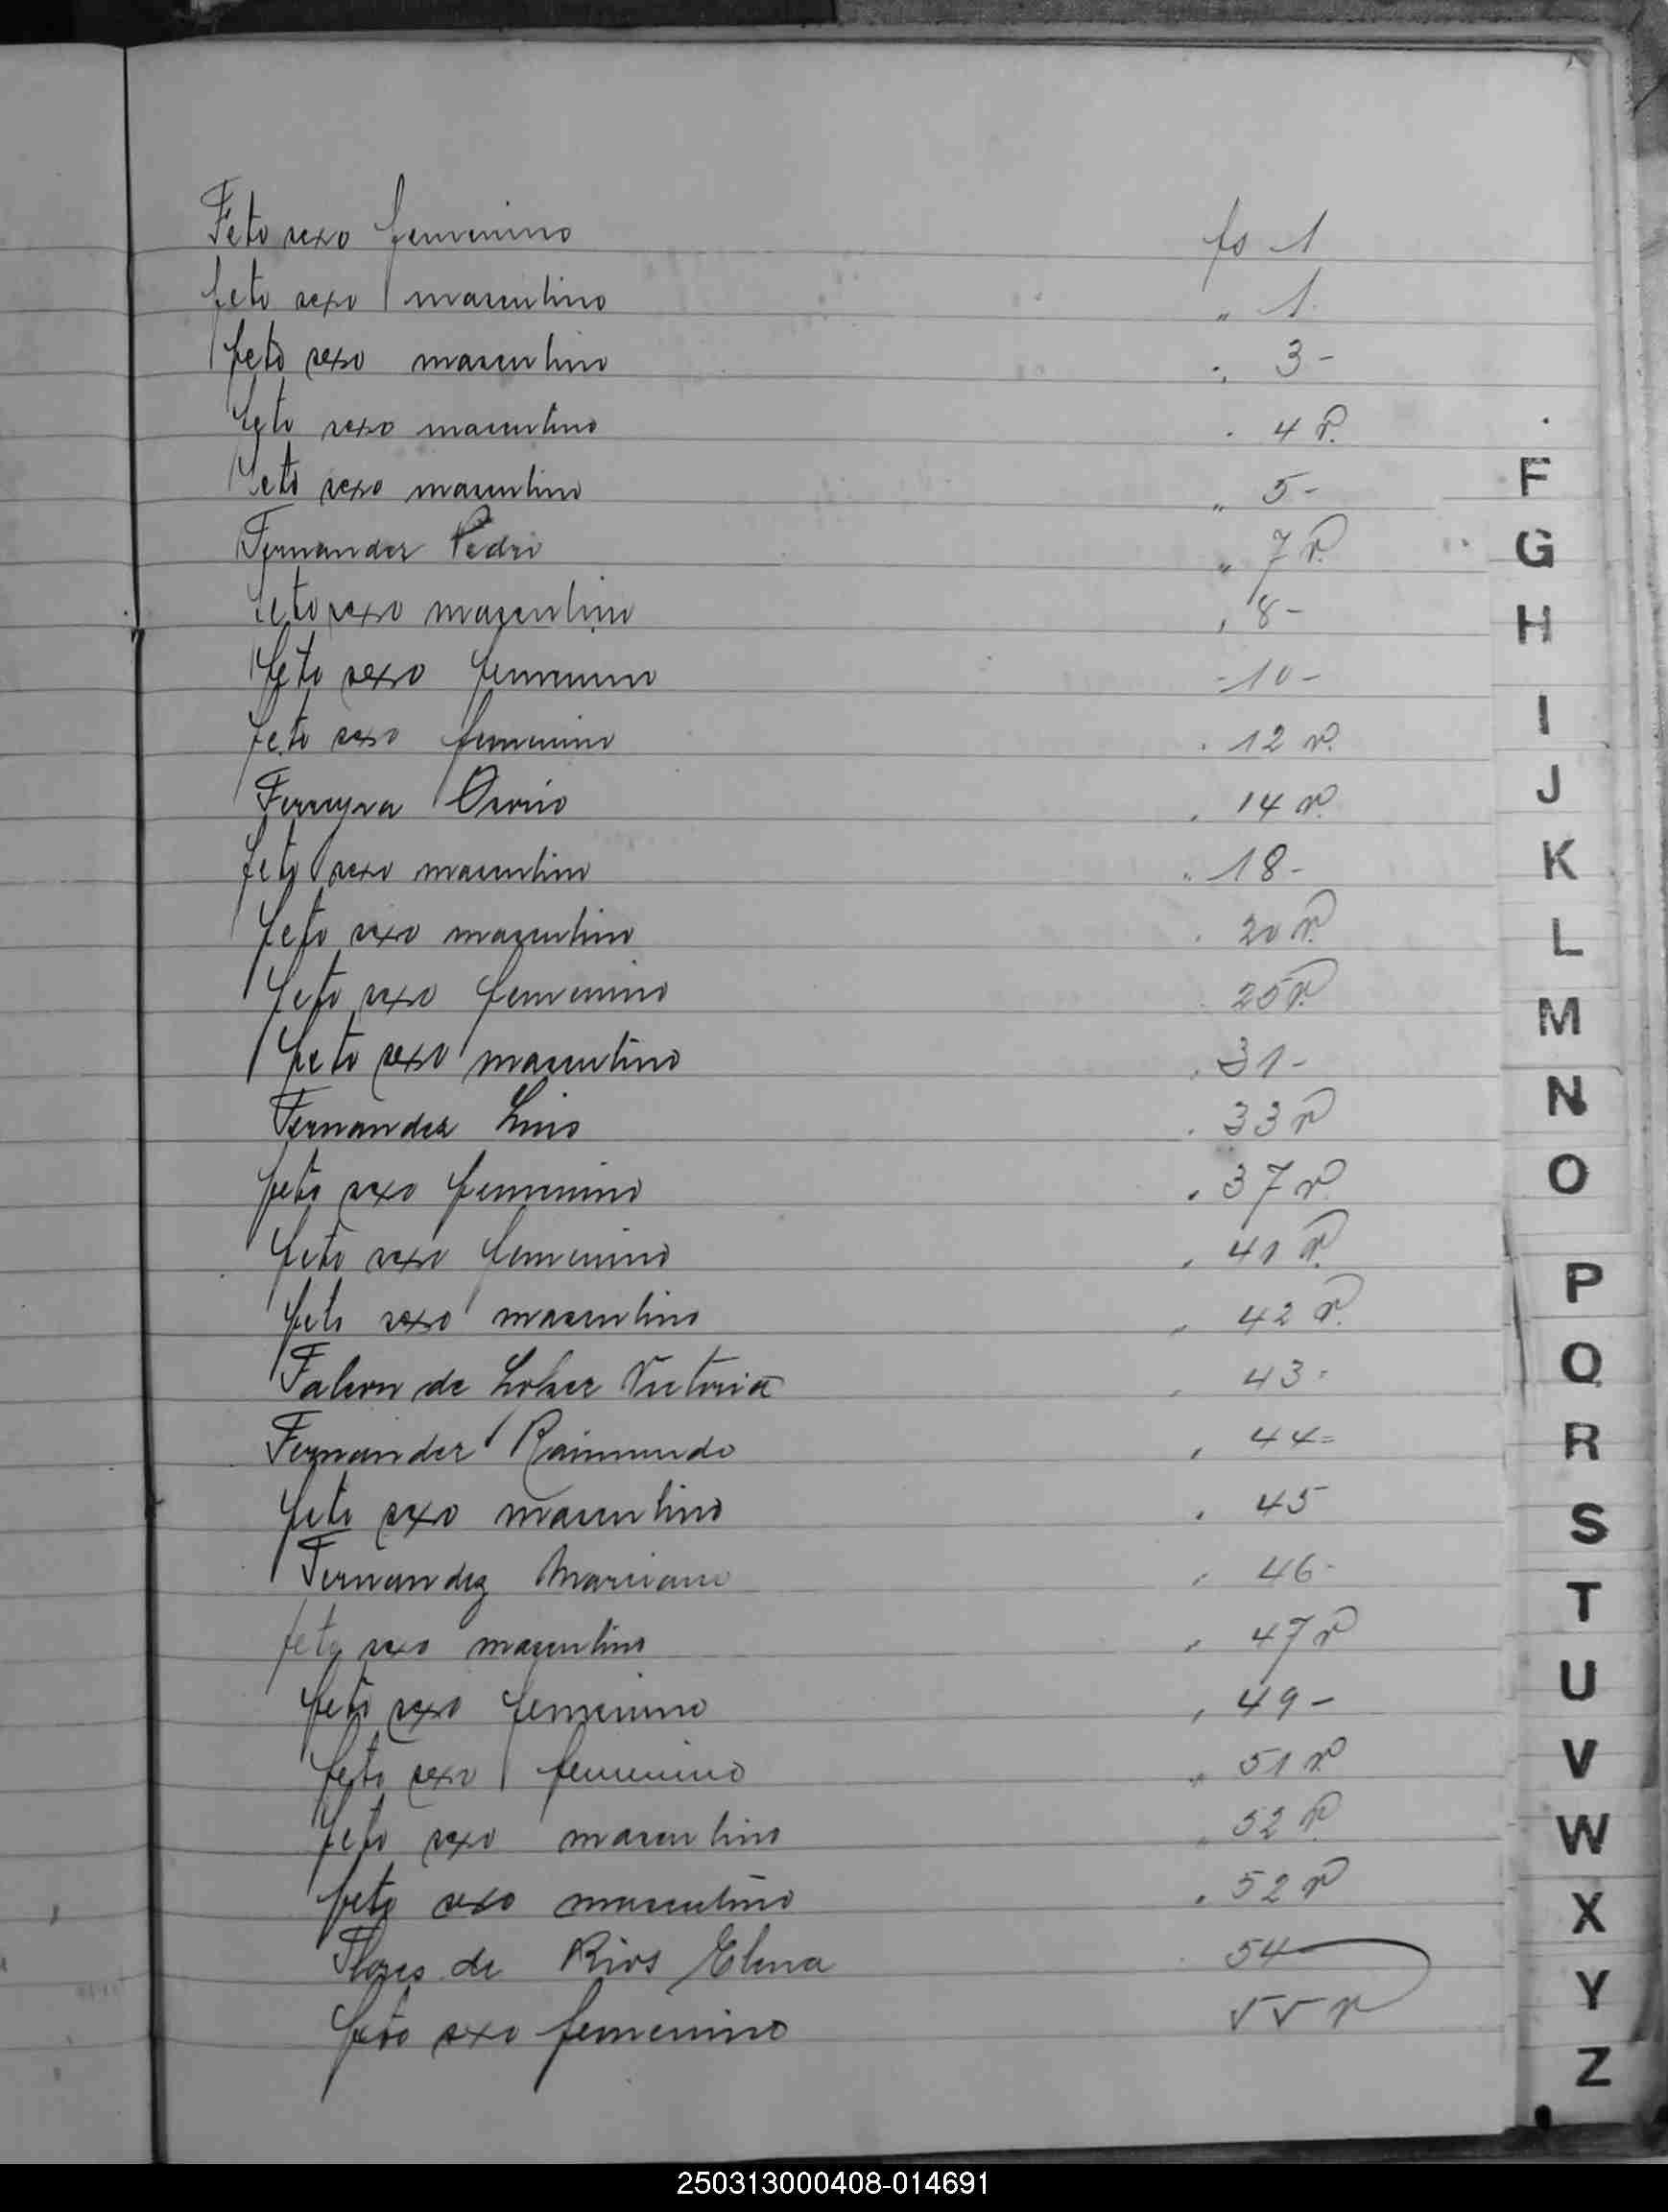 Feto sexo femenino fs 1
feto sexo masculino " 1.
feto sexo masculino " 3 -
feto sexo masculino . 4 v.
feto sexo masculino " 5 -
Fernandez Pedro " 7 v.
feto sexo masculino , 8 -
feto sexo femenino - 10 -
feto sexo femenino . 12 v.
Ferreyra . 14 v.
feto sexo masculino " 18 -
feto sexo masculino . 20 v.
feto sexo femenino 25 v.
feto sexo masculino . 31 -
Fernandez Lino . 33 v
feto sexo femenino . 37 v.
feto sexo femenino , 41 v.
feto sexo masculino , 42 v.
Falcon de Victoria , 43 -
Fernandez Raimundo , 44 =
feto sexo masculino . 45
Fernandez Marciano , 46 -
feto sexo masculino " 47 v
feto sexo femenino , 49 -
feto sexo femenino " 51 v.
feto sexo masculino " 52 v.
feto sexo masculino . 52 v
Flores de Rios Elena 54
feto sexo femenino 55 v
F
G
H
I
J
K
L
M
N
O
P
Q
R
S
T
U
V
W
X
Y
Z
250313000408-014691